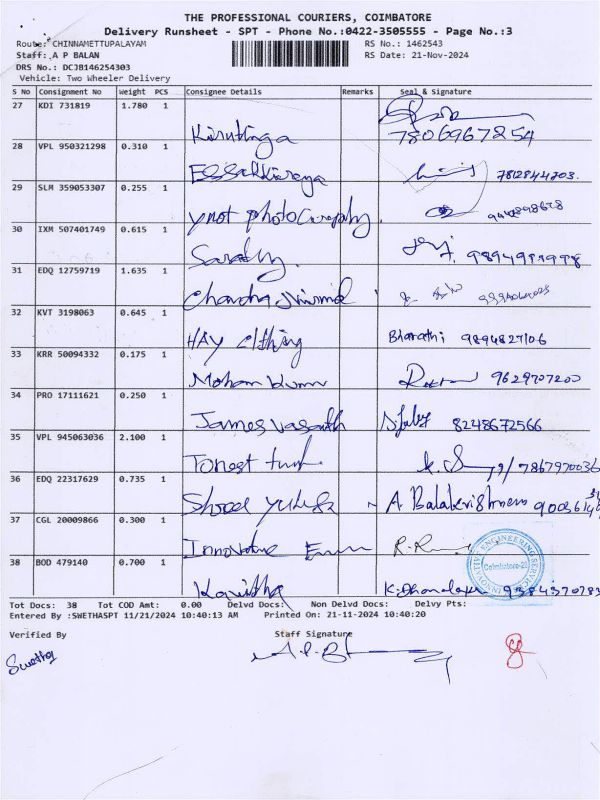 THE PROFESSIONAL COURIERS, COIMBATORE
Delivery Runsheet - SPT - Phone No.:0422-3505555 - Page No.:3
Route: CHINNAMETTUPALAYAM RS No.: 1462543
Staff: A P BALAN RS Date: 21-Nov-2024
DRS No.: DCJB146254303
Vehicle: Two Wheeler Delivery
S No Consignment No Weight PCS Consignee Details Remarks Seal & Signature
27 KDI 731819 1.780 1
Kiruthiga 7806967854
28 VPL 950321298 0.310 1
Essakkiraja 7812844203.
29 SLM 359053307 0.255 1
ynot photography
30 IXM 507401749 0.615 1
31 EDQ 12759719 1.635 1
Chandra
32 KVT 3198063 0.645 1
HAY Clthing Bharathi 9894827106
33 KRR 50094332 0.175 1
Mohan kumar 9629707200
34 PRO 17111621 0.250 1
James vasanth 8248672566
35 VPL 945063036 2.100 1
7867970036
36 EDQ 22317629 0.735 1
Shree A. Balakrishnan
37 CGL 20009866 0.300 1
Innovative
38 BOD 479140 0.700 1
Kavitha 9384370783
ENGINEERING SERVICE
Coimbatore-21
INNOVATIVE
Tot Docs: 38 Tot COD Amt: 0.00 Delvd Docs: Non Delvd Docs: Delvy Pts:
Entered By :SWETHASPT 11/21/2024 10:40:13 AM Printed On: 21-11-2024 10:40:20
Verified By Staff Signature
Swetha A.P.B